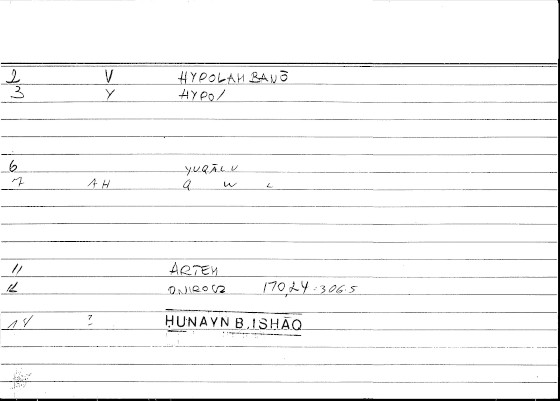 2 V HYPOLAMBANŌ
3 Y HYPO/
6 YUQĀLU
7 AH Q W L
11 ARTEM
12 ONIROCR 170,24 = 306.5
14 ? HUNAYN B. ISHĀQ